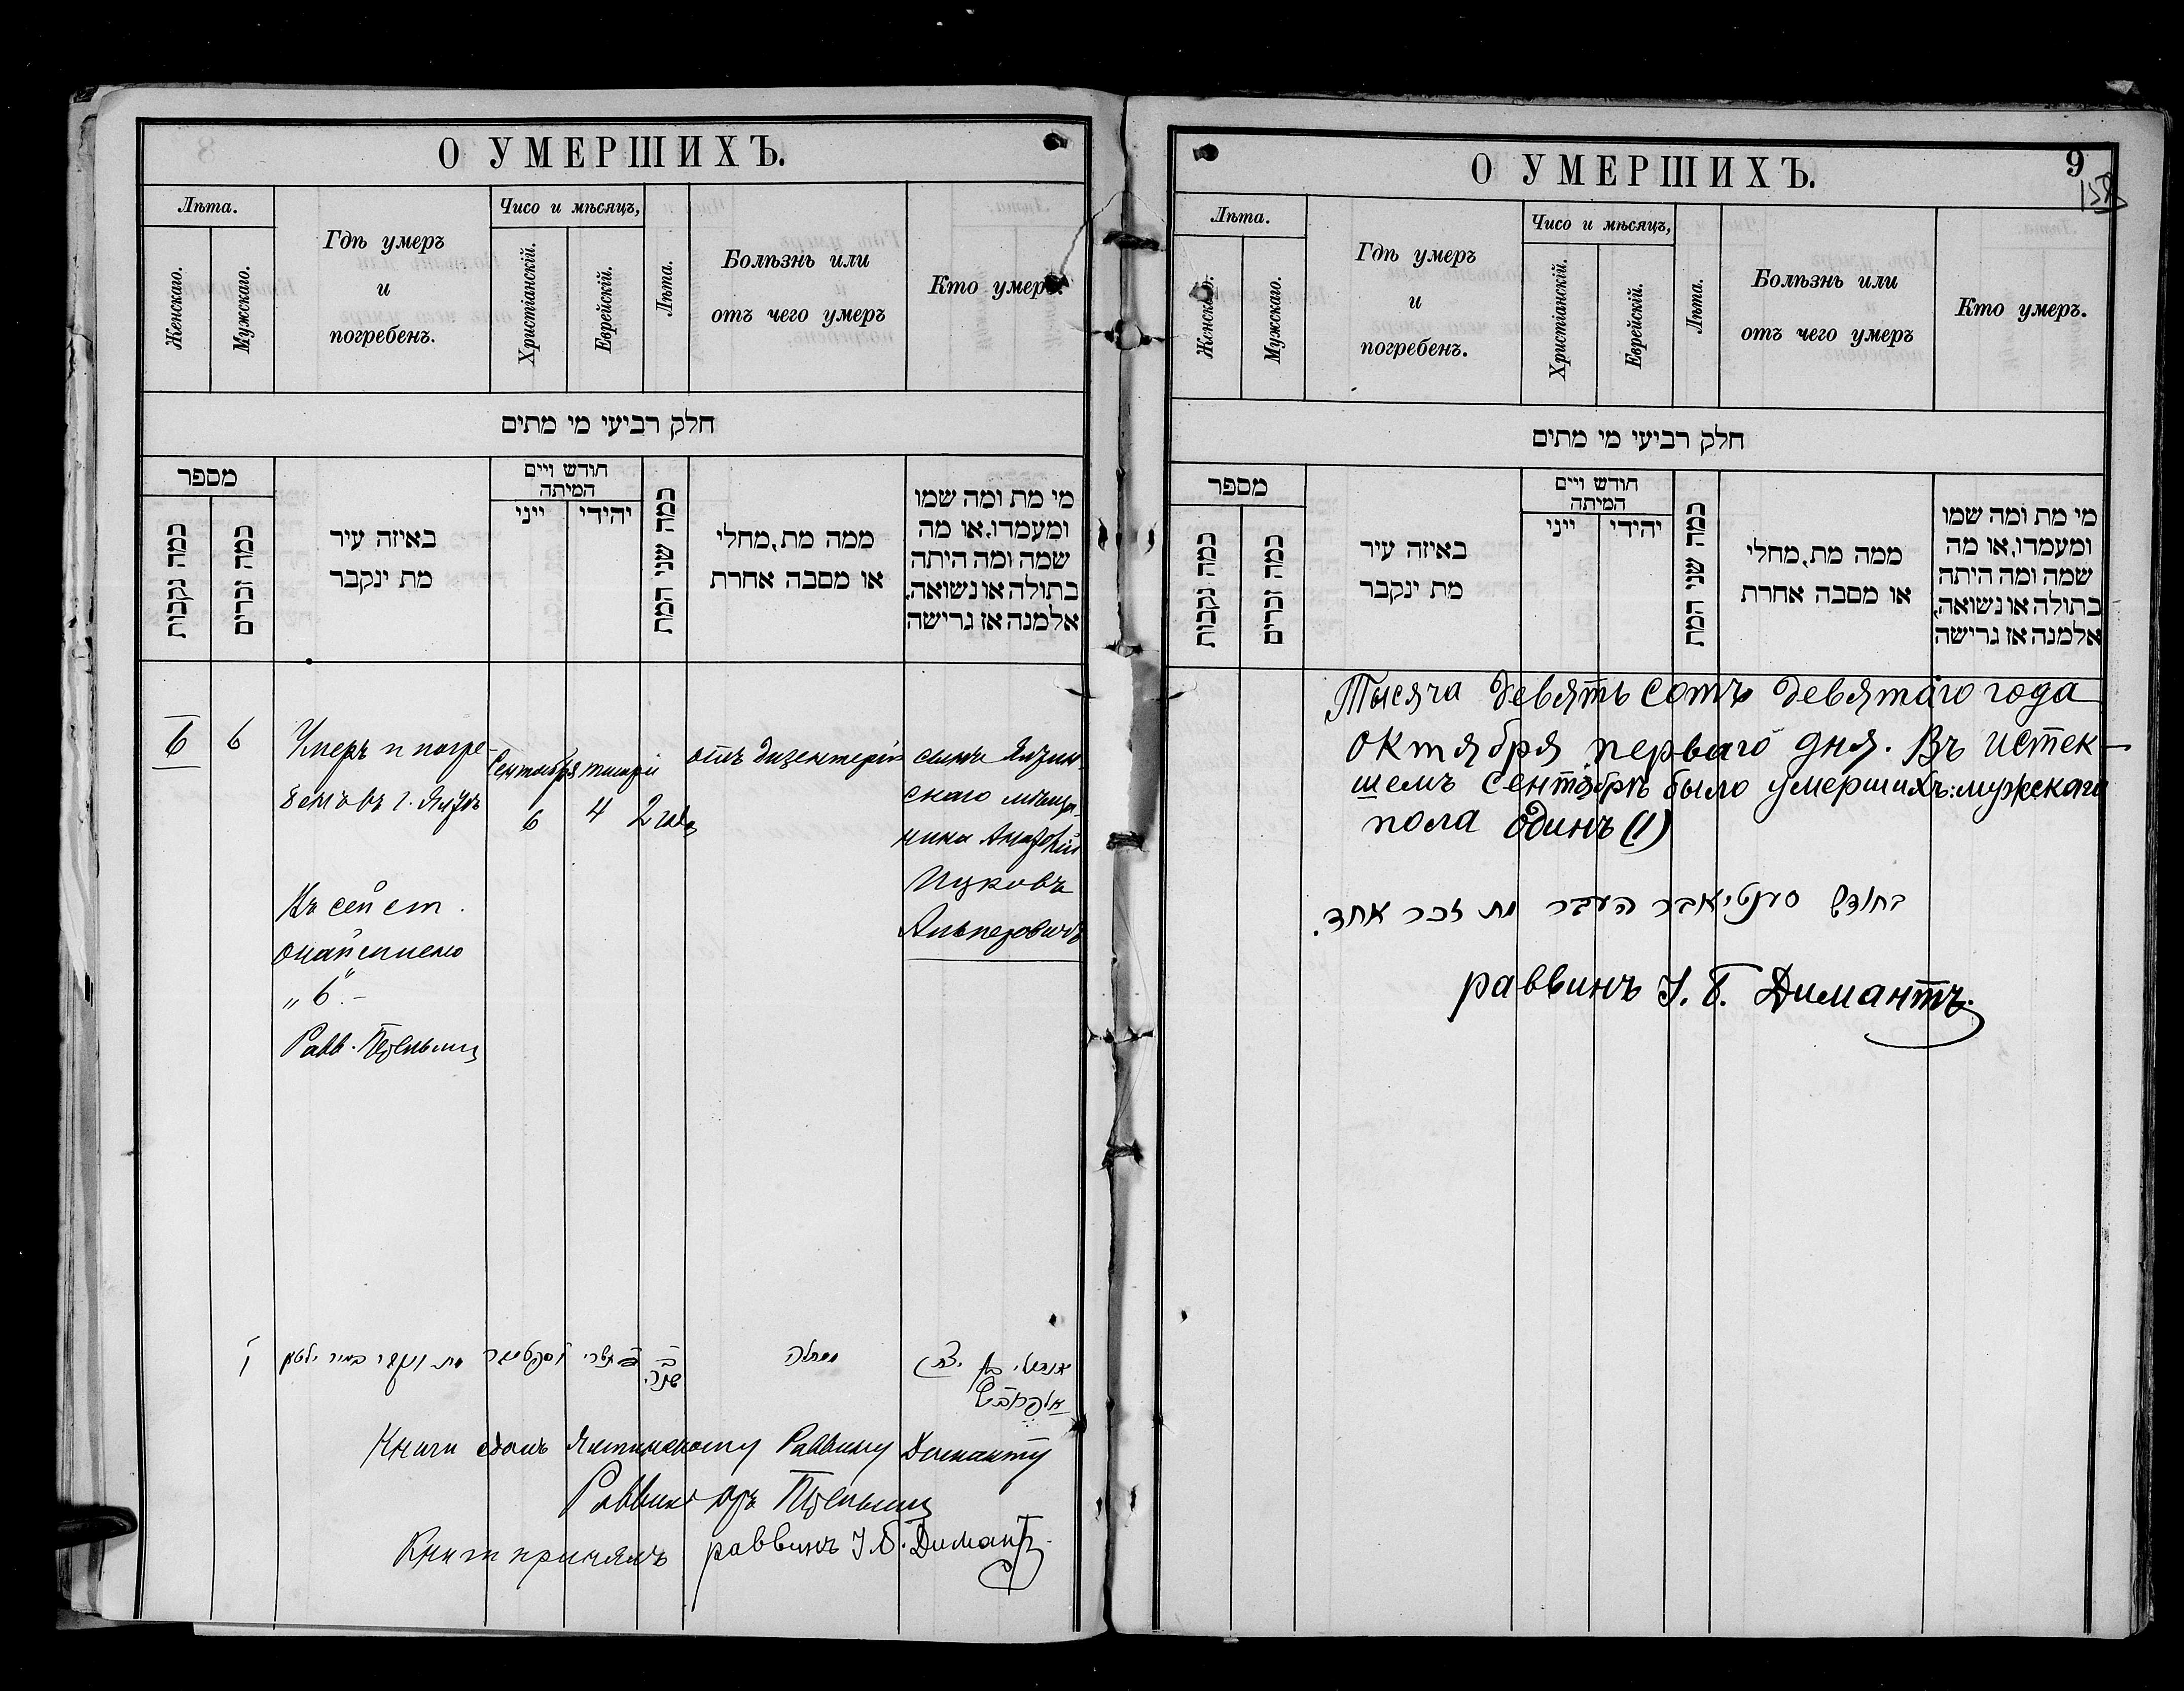 О УМЕРШИХЪ.
Лѣта.
Женскаго.
Мужскаго.
Гдѣ умеръ
и
погребенъ.
Чисо и мѣсяцъ,
Христіанскій.
Еврейскій.
Лѣта.
Болѣзнь или
отъ чего умеръ
Кто умеръ.
חלק רביעי מי מתים
מספר
כמה נקבות
כמה זכרים
באיזה עיר
מת ינקבר
חודש ויים
המיתה
ייני
יהידי
כמה שני המת
ממה מת, מחלי
או מסבה אחרת
מי מת ומה שמו
ומעמדו, או מה
שמה ומה היתה
בתולה או נשואה,
אלמנה אז גרישה
6
6
Умеръ и погре-
бенъ въ г.
Сентября
6
4
2 года
отъ дизентеріи
сынъ
скаго мѣща-
нина
Ицковъ
Альперовичъ
Въ сей ст.
„6“.-
Равв.
מת
תשרי
ב
Книги
Раввину Диманту
Раввинъ
Книги принялъ раввинъ І. Б. Димантъ.
О УМЕРШИХЪ.
9
Лѣта.
Женскаго.
Мужскаго.
Гдѣ умеръ
и
погребенъ.
Чисо и мѣсяцъ,
Христіанскій.
Еврейскій.
Лѣта.
Болѣзнь или
отъ чего умеръ
Кто умеръ.
חלק רביעי מי מתים
מספר
כמה נקבות
כמה זכרים
באיזה עיר
מת ינקבר
חודש ויים
המיתה
ייני
יהידי
כמה שני המת
ממה מת, מחלי
או מסבה אחרת
מי מת ומה שמו
ומעמדו, או מה
שמה ומה היתה
בתולה או נשואה,
אלמנה אז גרישה
Тысяча девятьсотъ девятаго года
октября перваго дня. Въ истек-
шемъ сентябрѣ было умершихъ: мужскаго
пола одинъ (1)
בחודש סענטיאבר העבר מת זכר אחד.
раввинъ І. Б. Димантъ.